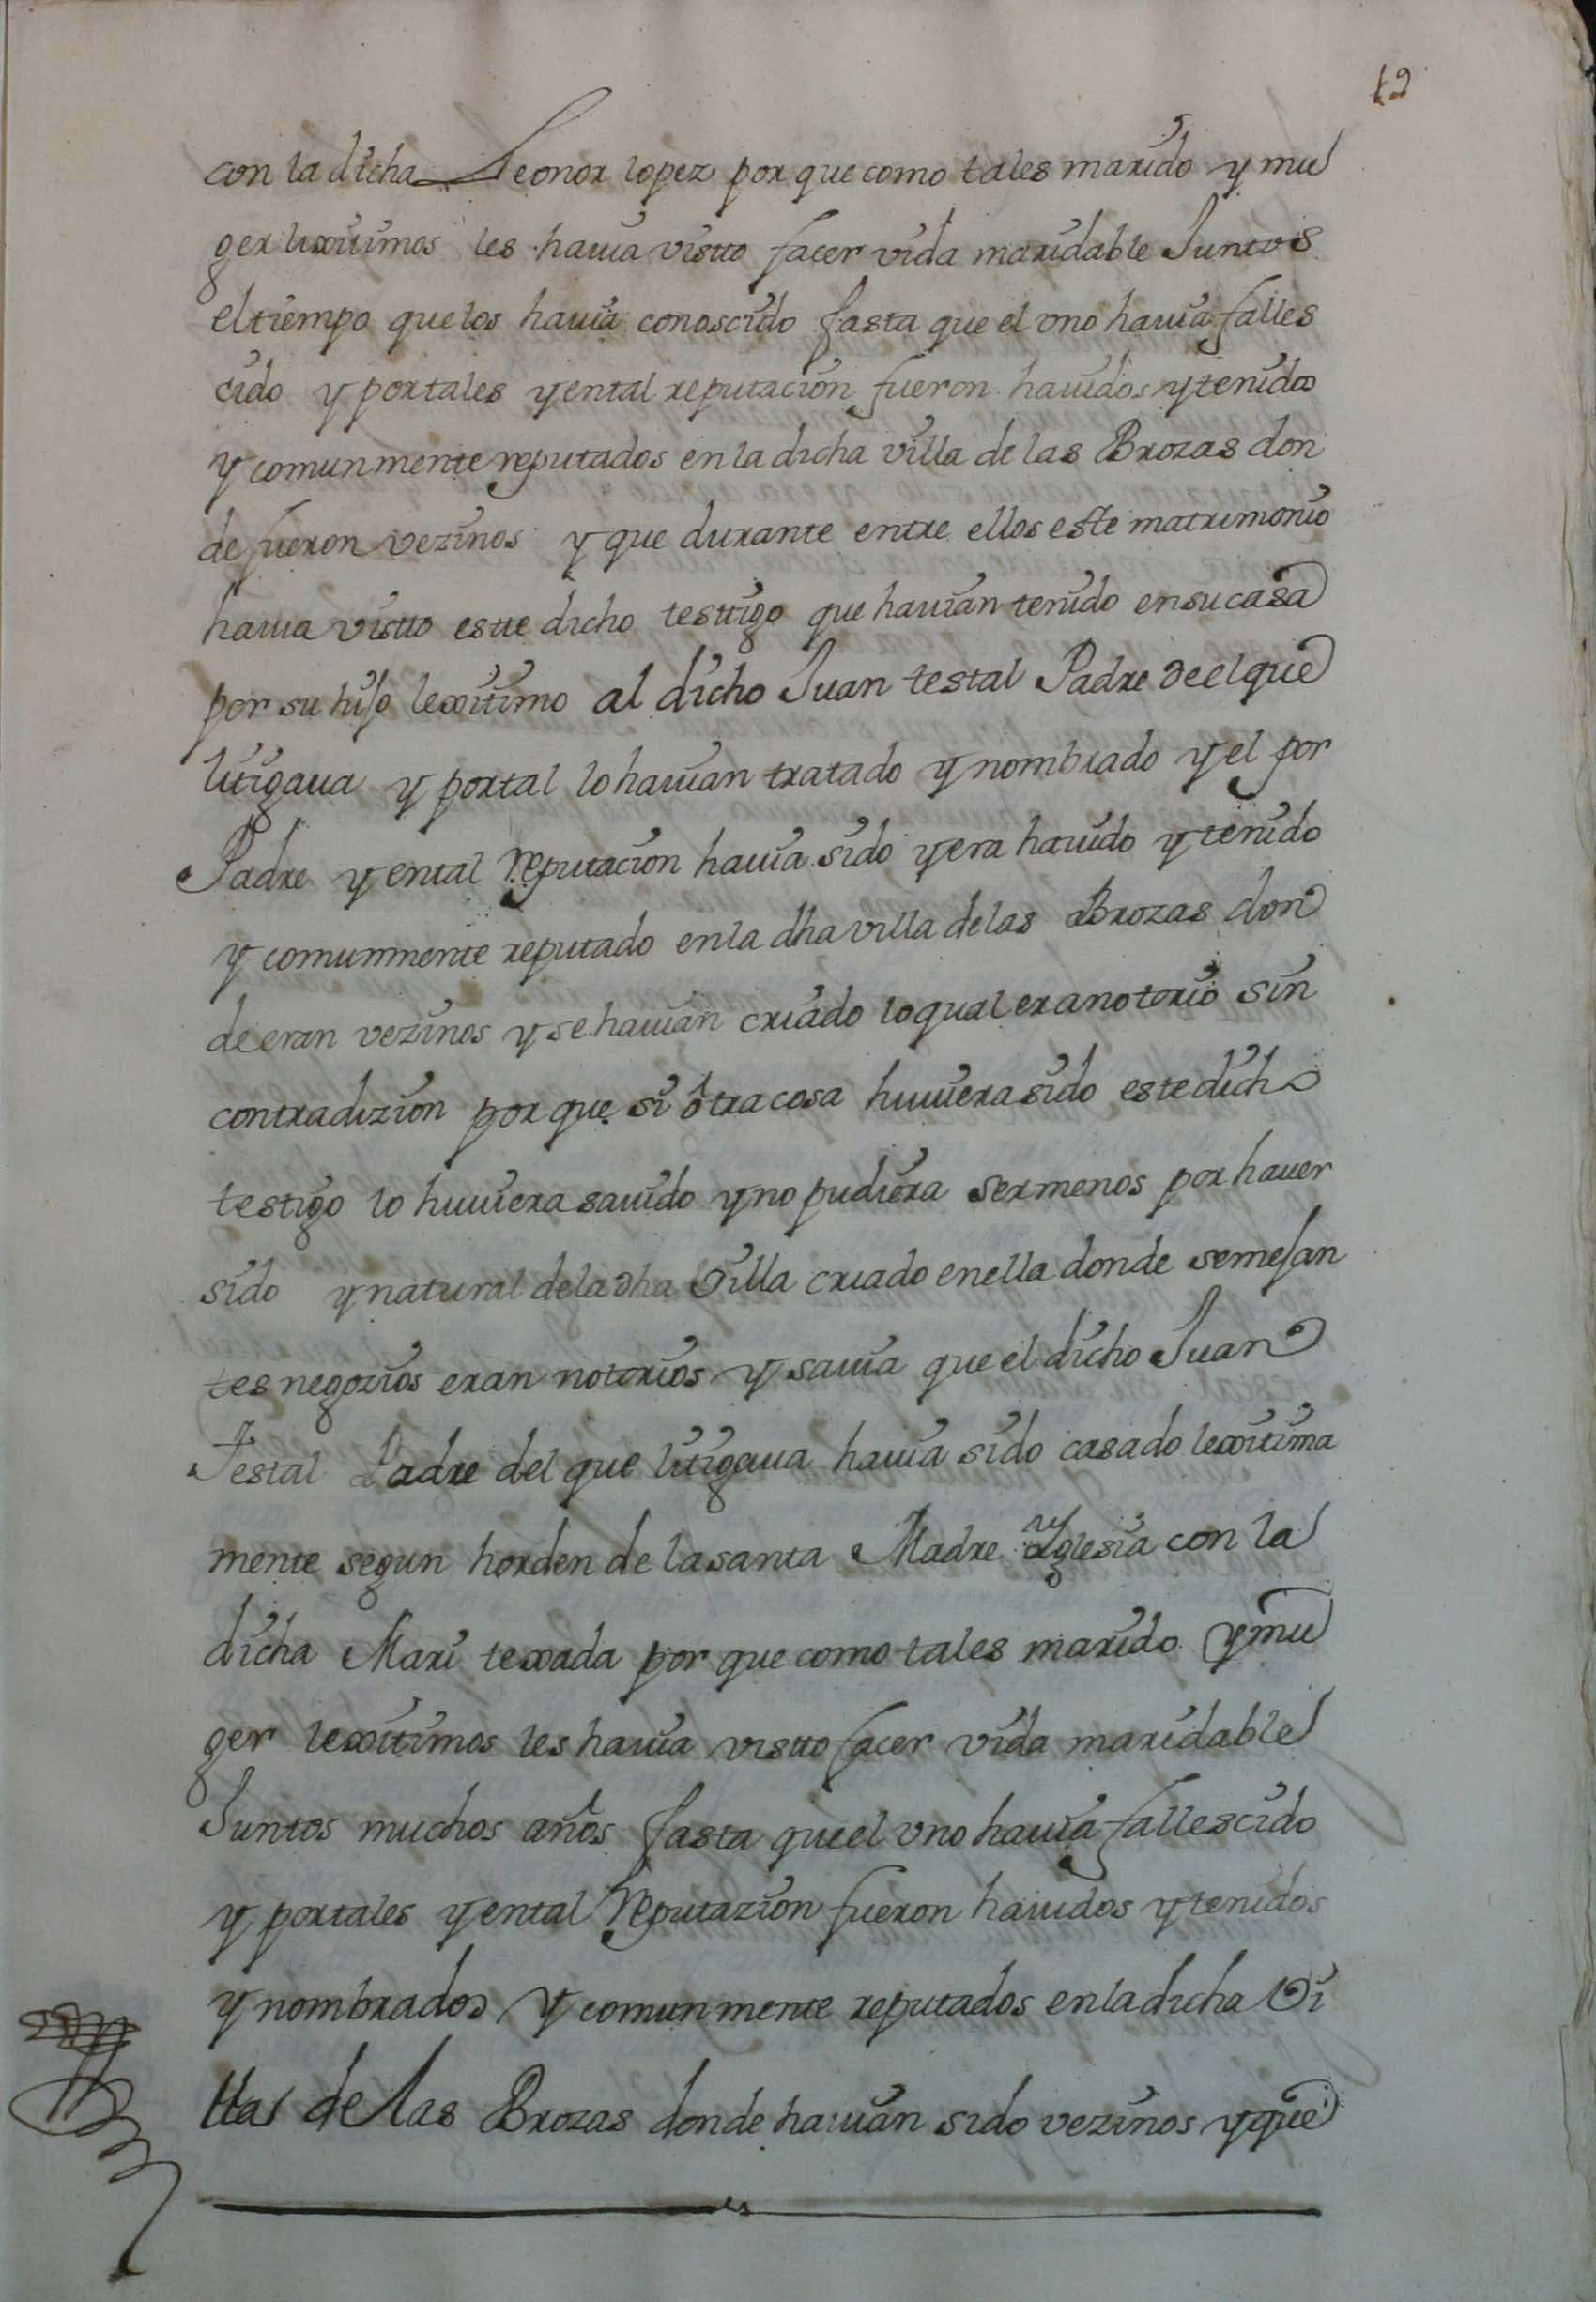 12
con la dicha Leonor lopez por que como tales marido y mu
ger lexitimos les hauia vistto facer vida maridable Juntos
el tiempo que los hauia conoscido fasta que el vno hauia falles
cido y por tales y en tal reputacion fueron hauidos y tenidos
y comunmente reputados en la dicha villa de las Brozas don
de fueron vezinos y que durante entre ellos este matrimonio
hauia vistto estte dicho testtigo que hauian tenido en su casa
por su hijo lexitimo al dicho Juan testal Padre de el que
litigaua y por tal lo hauian tratado y nombrado y el por
Padre y en tal Reputacion hauia sido y era hauido y tenido
y comunmente reputado en la dha villa de las Brozas don
de eran vezinos y se hauian criado lo qual era notorio sin
contradizion por que si otra cosa huuiera sido este dicho
testigo lo huuiera sauido y no pudiera ser menos por hauer
sido y natural de la dha Villa criado en ella donde semejan
tes negozios eran notorios y sauia que el dicho Juan
Testal Padre del que litigaua hauia sido casado lexitima
mente segun horden de la santa Madre Yglesia con la
dicha Mari texada por que como tales marido y mu
ger lexitimos les hauia vistto facer vida maridable
Juntos muchos años fasta que el vno hauia fallescido
y por tales y en tal Reputazion fueron hauidos y tenidos
y nombrados y comunmente reputados en la dicha Vi
lla de las Brozas donde hauian sido vezinos y que